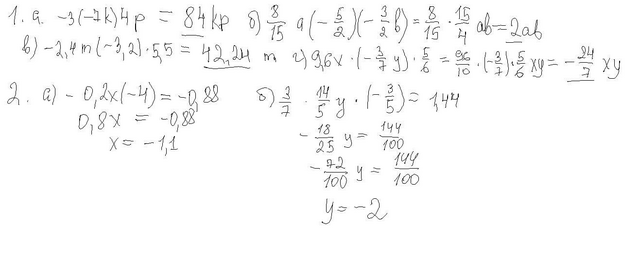 1. а. -3(-7k)4p = 84kp б) 8/15 a(-5/2)(-3/2 b) = 8/15 · 15/4 ab = 2ab
в) -2,4m(-3,2)·5,5 = 42,24 m г) 9,6x·(-3/7 y)·5/6 = 96/10·(-3/7)·5/6 xy = -24/7 xy
2. а) -0,2x(-4) = -0,88 б) 3/7 · 14/5 y · (-3/5) = 1,44
0,8x = -0,88 -18/25 y = 144/100
x = -1,1 -72/100 y = 144/100
y = -2